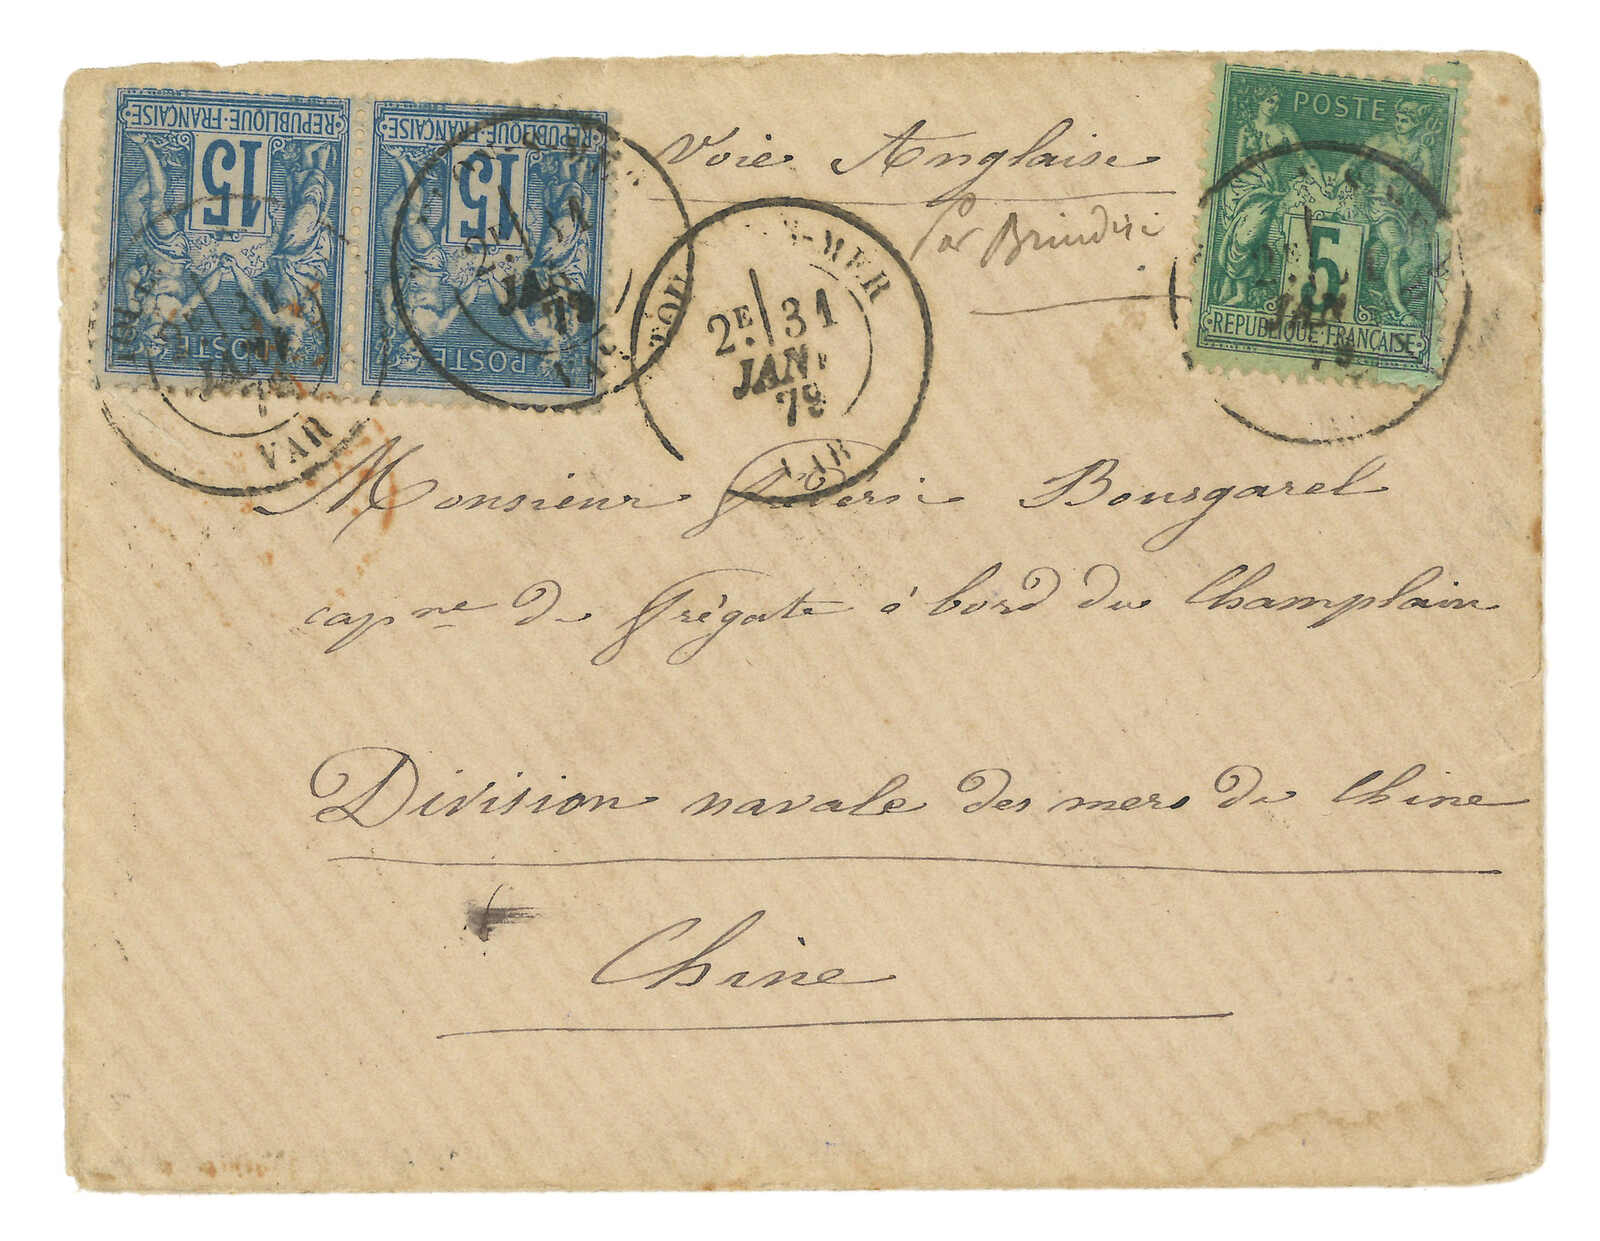 REPUBLIQUE·FRANÇAISE
15
POSTE
REPUBLIQUE·FRANÇAISE
15
POSTE
Voie Anglaise
Par Brindisi
POSTE
5
REPUBLIQUE·FRANÇAISE
VAR
N-MER
2E 31
JANV
79
VAR
Monsieur Bousgarel
capne de frégate à bord du Champlain
Division navale des mers de Chine
Chine